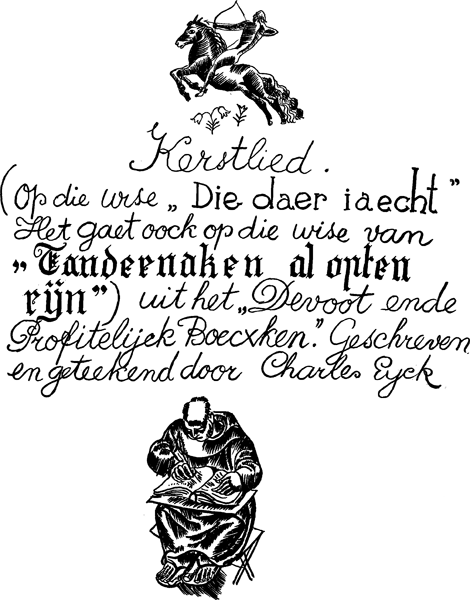 Kerstlied.
(Op die wise „Die daer iaecht”
Het gaet oock op die wise van
„Tandernaken al opten
rijn”) uit het „Devoot ende
Profitelijck Boecxken”. Geschreven
en geteekend door Charles Eyck